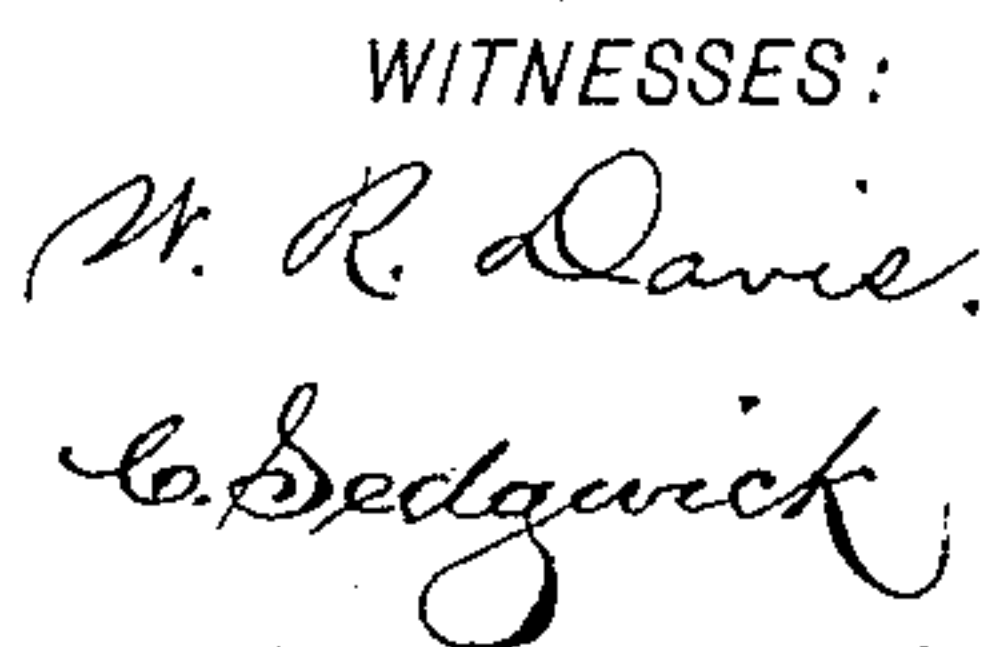 WITNESSES:
W. R. Davis.
C. Sedgwick